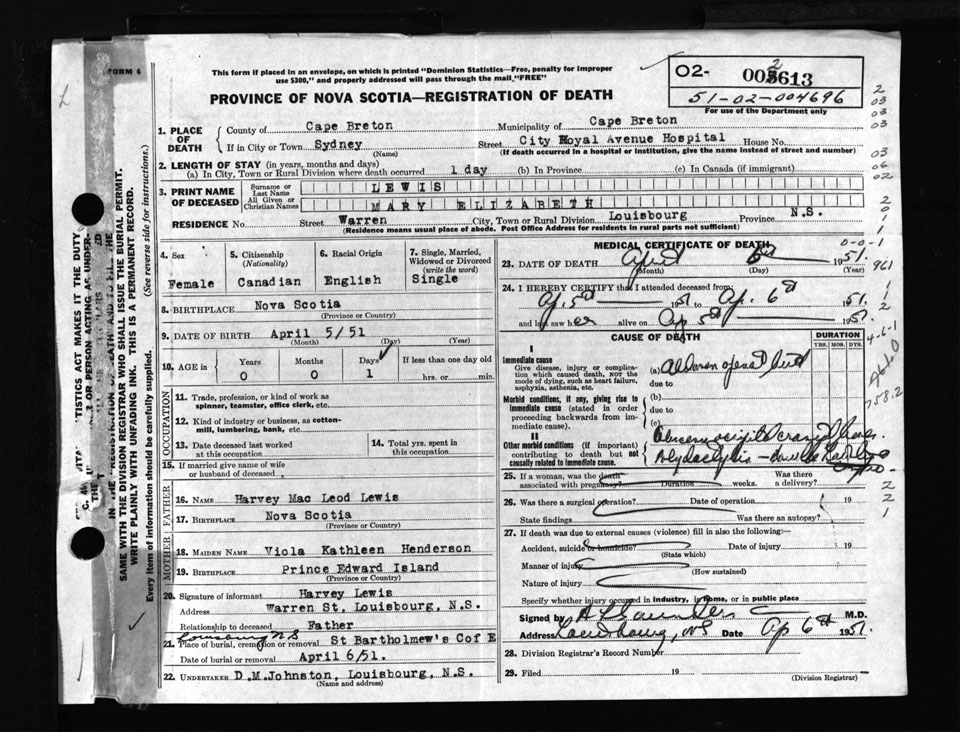 FORM 6
This form if placed in an envelope, on which is printed "Dominion Statistics—Free, penalty for improper
use $300," and properly addressed will pass through the mail, "FREE"
PROVINCE OF NOVA SCOTIA—REGISTRATION OF DEATH
O2-
613
51-02-004696
For use of the Department only
1. PLACE OF DEATH
County of Cape Breton Municipality of Cape Breton
If in City or Town Sydney Street City Royal Avenue Hospital House No.
(Name) (If death occurred in a hospital or institution, give the name instead of street and number)
2. LENGTH OF STAY (in years, months and days)
(a) In City, Town or Rural Division where death occurred 1 day (b) In Province (c) In Canada (if immigrant)
3. PRINT NAME OF DECEASED
Surname or Last Name LEWIS
All Given or Christian Names MARY ELIZABETH
RESIDENCE No. Street Warren City, Town or Rural Division Louisbourg Province N.S.
(Residence means usual place of abode. Post Office Address for residents in rural parts not sufficient)
4. Sex
Female
5. Citizenship
(Nationality)
Canadian
6. Racial Origin
English
7. Single, Married,
Widowed or Divorced
(write the word)
Single
8. BIRTHPLACE Nova Scotia
(Province or Country)
9. DATE OF BIRTH April 5/51
(Month) (Day) (Year)
10. AGE in
Years Months Days If less than one day old
0 0 1 hrs. or min.
OCCUPATION
11. Trade, profession, or kind of work as
spinner, teamster, office clerk, etc.
12. Kind of industry or business, as cotton-
mill, lumbering, bank, etc.
13. Date deceased last worked
at this occupation
14. Total yrs. spent in
this occupation
15. If married give name of wife
or husband of deceased
FATHER
16. NAME Harvey Mac Leod Lewis
17. BIRTHPLACE Nova Scotia
(Province or Country)
MOTHER
18. MAIDEN NAME Viola Kathleen Henderson
19. BIRTHPLACE Prince Edward Island
(Province or Country)
20. Signature of informant Harvey Lewis
Address Warren St, Louisbourg, N.S.
Relationship to deceased Father
Louisburg NS
21. Place of burial, cremation or removal St Bartholmew's Cof E
Date of burial or removal April 6/51.
22. UNDERTAKER D.M.Johnston, Louisbourg, N.S.
(Name and address)
MEDICAL CERTIFICATE OF DEATH
23. DATE OF DEATH April 6th 1951.
(Month) (Day) (Year)
24. I HEREBY CERTIFY that I attended deceased from
Ap. 5th 1951 to Ap. 6th 1951.
and last saw her alive on Ap 5th 1951.
CAUSE OF DEATH
DURATION
YRS. MOS. DYS.
I
Immediate cause
Give disease, injury or complica-
tion which caused death, NOT the
mode of dying, such as heart failure,
asphyxia, asthenia, etc.
(a)
due to
Morbid conditions, if any, giving rise to
immediate cause (stated in order
proceeding backwards from im-
mediate cause).
(b)
due to
(c)
II
Other morbid conditions (if important)
contributing to death but not
causally related to immediate cause.
25. If a woman, was the death
associated with pregnancy? Duration weeks. Was there
a delivery?
26. Was there a surgical operation? Date of operation 19
State findings Was there an autopsy?
27. If death was due to external causes (violence) fill in also the following:
Accident, suicide or homicide? Date of injury 19
(State which)
Manner of injury
(How sustained)
Nature of injury
Specify whether injury occurred in industry, in home, or in public place
Signed by M.D.
Address Louisbourg, NS Date Ap 6th 1951.
28. Division Registrar's Record Number
29. Filed 19
(Division Registrar)
SAME WITH THE DIVISION REGISTRAR WHO SHALL ISSUE THE BURIAL PERMIT.
WRITE PLAINLY WITH UNFADING INK. THIS IS A PERMANENT RECORD.
Every item of information should be carefully supplied. (See reverse side for instructions.)